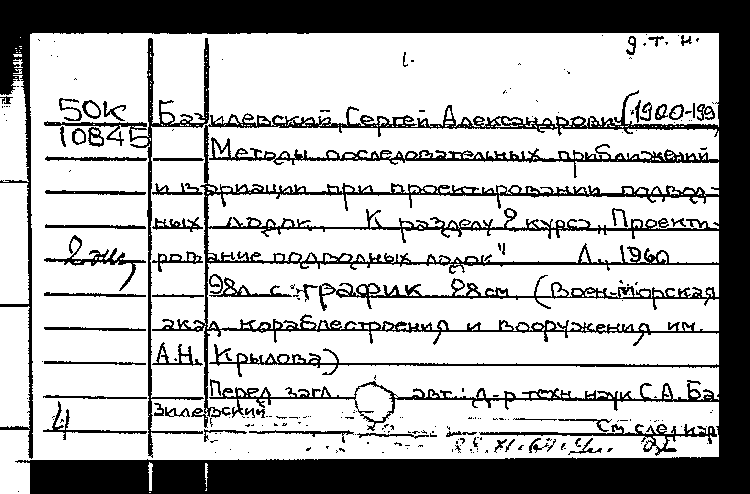 д.т.н.
1.
50К Базилевский, Сергей Александрович (1900-199
10845
Методы последовательных приближений
и вариации при проектировании подвод-
ных лодок. К разделу 2 курса „Проекти-
2 экз, рование подводных лодок" Л., 1960
98л. с график 28см. (Воен-морская
акад. кораблестроения и вооружения им.
А.Н. Крылова)
Перед загл. авт.: д-р техн. наук С.А. Ба-
4 зилевский
См. след кар